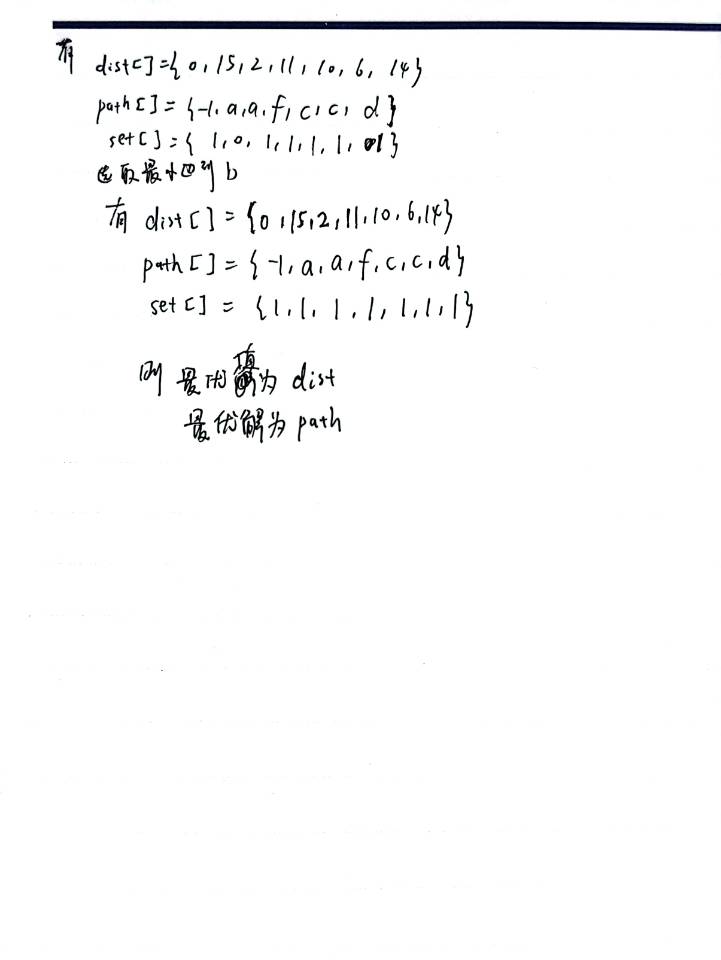 有 dist[]={0,15,2,11,10,6,14}
path[]={-1,a,a,f,c,c,d}
set[]={1,0,1,1,1,1,1}
选取最小的到b
有 dist[]={0,15,2,11,10,6,14}
path[]={-1,a,a,f,c,c,d}
set[]={1,1,1,1,1,1,1}
则 最优值为 dist
最优解为 path